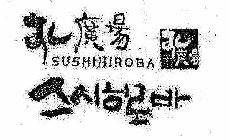 すし廣場
SUSHIHIROBA
스시히로바